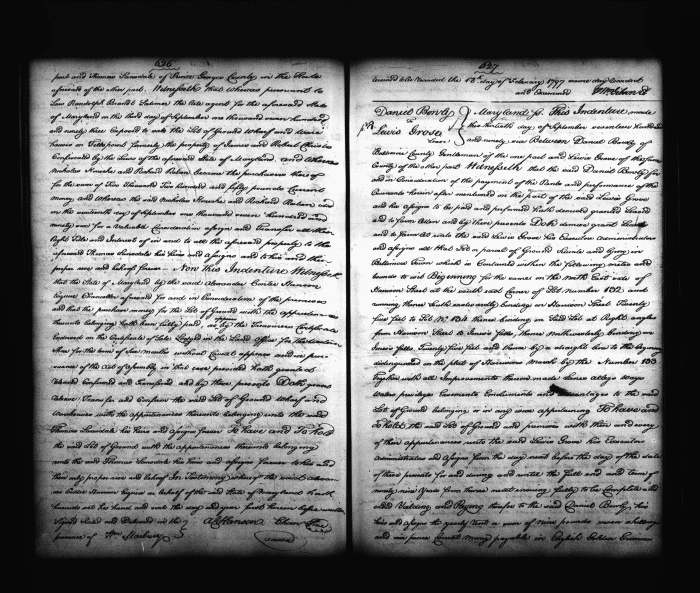 636
part and Thomas Lansdale of Prince Georges County in the State
aforesaid of the other part. Witnesseth that whereas pursuant to
Law Randolph Brandt Latimer the late agent for the aforesaid State
of Maryland on the third day of September one thousand seven hundred
and ninety three Exposed to sale the Lot of Ground Wharf and
houses on Fells point formerly the property of James and Robert Christie
Confiscated by the Laws of the aforesaid State of Maryland, and whereas
Nicholas and Richard became the purchasers thereof
for the sum of Two Thousand Two hundred and fifty pounds Current
money, and whereas the said Nicholas and Richard on
the day of September one thousand seven hundred and
ninety for a Valuable Consideration assign and Transfer all their
Right Title and Interest of in and to all the aforesaid property to the
aforesaid Thomas Lansdale his Heirs and assigns and to his and their
proper use and behoof forever. Now This Indenture Witnesseth
that the State of Maryland by the said Alexander Contee Hanson
Esquire Chancellor aforesaid for and in Consideration of the premises
and that the purchase money for the Lot of Ground with the appurtenances
thereunto belonging hath been fully paid, as appears by the Treasurers Certificate
Endorsed on the Certificate of Sale Lodged in the Land Office for the Western
Shore for the term of Six months without Caveat appears and in pur-
suance of the Act of Assembly in that case provided Hath granted
released Confirmed and Transferred and by these presents Doth grant
release Transfer and Confirm the said Lot of Ground Wharf and
Warehouses with the appurtenances thereunto belonging unto the said
Thomas Lansdale his Heirs and assigns forever To have and To hold
the said Lot of Ground with the appurtenances thereunto belonging
unto the said Thomas Lansdale his Heirs and assigns forever to his and
their only proper use and behoof In Testimony whereof the said Alexan-
der Contee Hanson Esquire on behalf of the said State of Maryland hath
hereunto set his hand and seal the day and year first herein before written
Signed Sealed and Delivered in the } A C Hanson Chan Seal
presence of Wm Marbury
637
received to be recorded the 13th day of February 1797 same day recorded
and Examined
Daniel Bowly
to
Lewis Grove
Lease
Maryland ss. This Indenture made
this day of September seventeen hundred
and ninety six Between Daniel Bowly of
Baltimore County Gentleman of the one part and Lewis Grove of the same
County of the other part Witnesseth that the said Daniel Bowly for
and in Consideration of the payment of the Rents and performance of the
Covenants herein after mentioned on the part of the said Lewis Grove
and his assigns to be paid and performed hath demised granted Leased
and to farm letten and by these presents Doth demise grant Lease
and to farm let unto the said Lewis Grove his Executors administrators
and assigns all that Lot or parcel of Ground Situate and lying in
Baltimore Town which is Contained within the following metes and
bounds to wit Beginning for the same on the North East side of
Harrison Street at the south west Corner of Lot Number 132 and
running thence South easterly binding on Harrison Street Twenty
five feet to Lot No. 134 thence binding on said Lot at Right angles
from Harrison Street to Jones's falls, thence northwesterly binding on
Jones's falls Twenty five feet and thence by a straight line to the beginning
distinguished on the plat of Harrisons Marsh by the Number 133
Together with all Improvements thereon made Lanes alleys ways
waters privileges Easements Conditions and advantages to the said
Lot of Ground belonging or in any wise appertaining To have and
To hold the said Lot of Ground and premises with their and every
of their appurtenances unto the said Lewis Grove his Executors
administrators and assigns from the day next before the day of the date
of these presents for and during and until the full end and term of
ninety nine years from thence next ensuing fully to be Compleate and
ended Yielding and Paying therefor to the said Daniel Bowly, his
heirs and assigns the yearly rent or sum of nine pounds seven shillings
and six pence Current money payable in English Golden Guineas